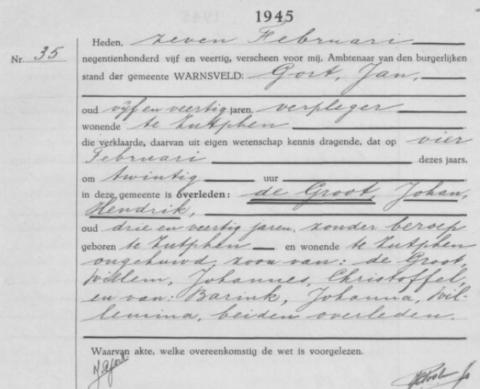 1945
Heden, zeven Februari
Nr. 35
negentienhonderd vijf en veertig, verscheen voor mij, Ambtenaar van den burgerlijken
stand der gemeente WARNSVELD: Gort, Jan,
oud vijf en veertig jaren, verpleger
wonende te Zutphen
die verklaarde, daarvan uit eigen wetenschap kennis dragende, dat op vier
Februari dezes jaars,
om twintig uur
in deze gemeente is overleden: de Groot, Johan,
Hendrik,
oud drie en veertig jaren, zonder beroep
geboren te Zutphen en wonende te Zutphen
ongehuwd, zoon van: de Groot,
Willem, Johannes, Christoffel,
en van: Barink, Johanna, Wil-
lemina, beiden overleden.
Waarvan akte, welke overeenkomstig de wet is voorgelezen.